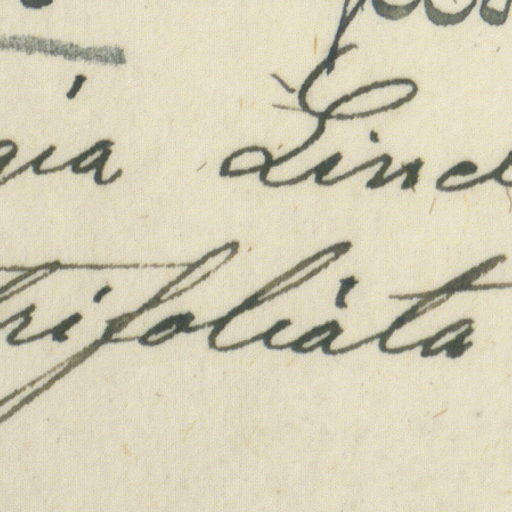 gia Lind
trifoliata